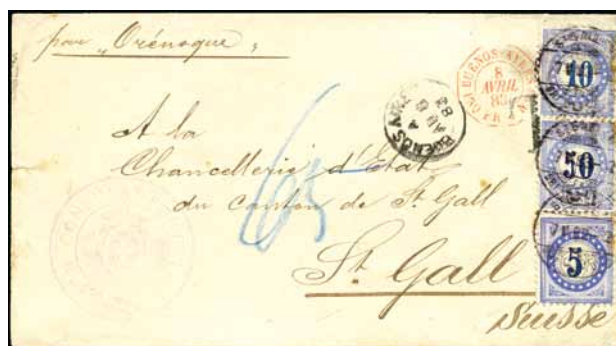 pour "Orénoque"
10
BUENOS-AYRES
8
AVRIL
83
BUENOS AIRES
AB 8
83
A la
Chancellerie d'Etat
du canton de St. Gall
St. Gall
Suisse
65
50
5